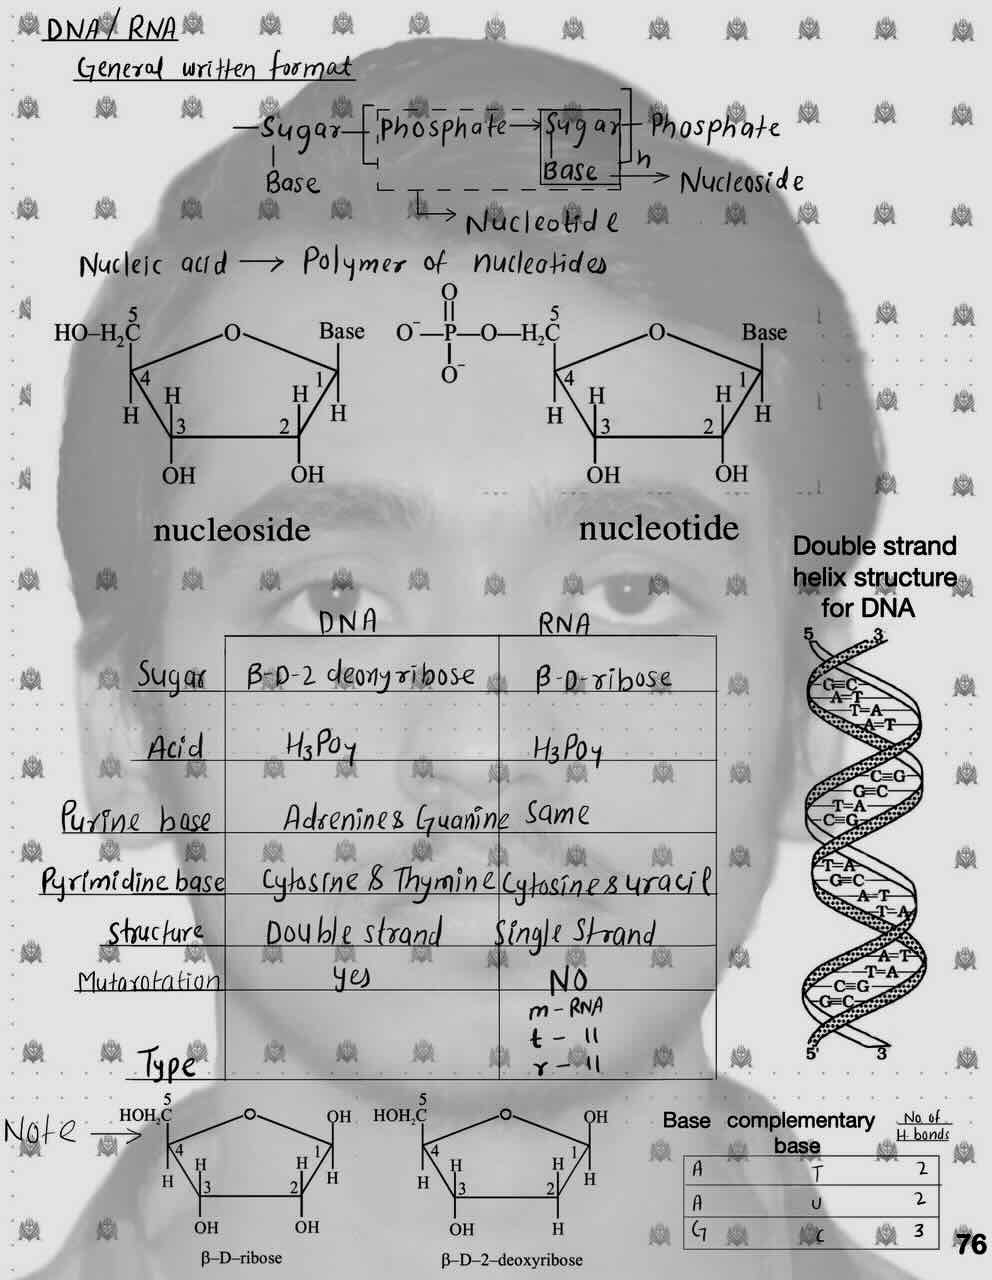 DNA/RNA
General written format
—Sugar—[Phosphate→Sugar]n—Phosphate
Base
Base → Nucleoside
→ Nucleotide
Nucleic acid → Polymer of nucleotides
HO–H₂C 5 O Base
4 H H H 1 H
3 2
OH OH
nucleoside
O
O⁻–P–O–H₂C 5 O Base
O⁻
4 H H H 1 H
3 2
OH OH
nucleotide
Double strand
helix structure
for DNA
5 3
G=C
A=T
T=A
A=T
C≡G
G=C
T=A
C=G
T=A
G=C
A=T
T=A
A=T
T=A
C=G
G=C
5' 3'
DNA RNA
Sugar β-D-2 deonyribose β-D-ribose
Acid H₃PO₄ H₃PO₄
Purine base Adrenine & Guanine Same
Pyrimidine base Cytosine & Thymine Cytosine & uracil
Structure Double strand Single Strand
Mutarotation yes NO
m-RNA
t - 11
r - 11
Type
Note →
HOH₂C 5 O OH
4 H H H 1 H
3 2
OH OH
β–D–ribose
HOH₂C 5 O OH
4 H H H 1 H
3 2
OH H
β–D–2–deoxyribose
Base complementary base No of H bonds
A T 2
A U 2
G C 3
76